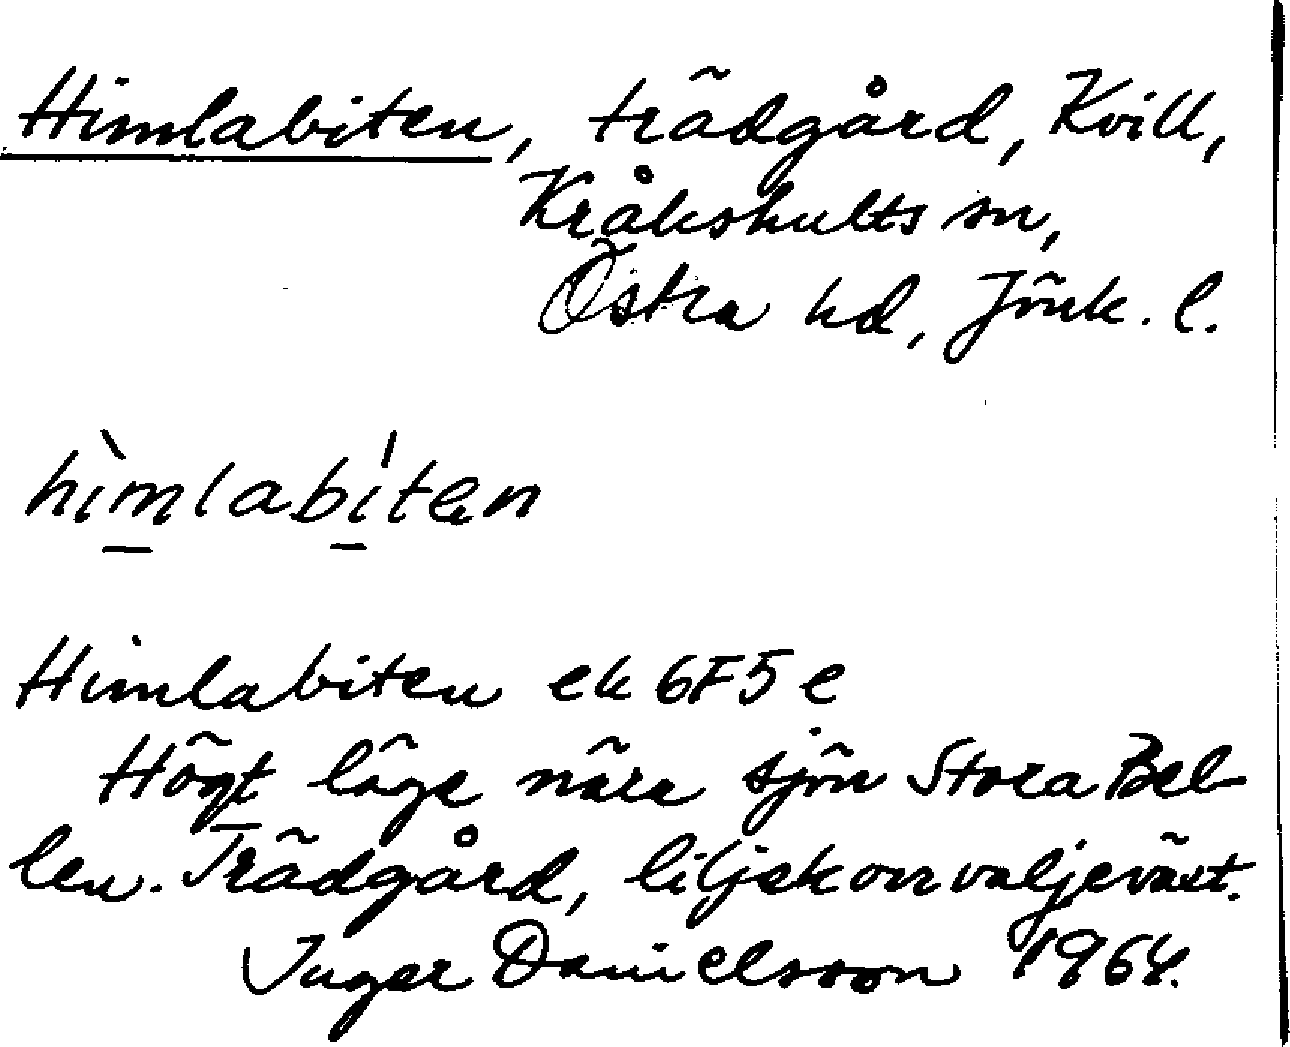 Himlabiten, trädgård, Kvill,
Kråkshults sn,
Östra hd, Jönk. l.
hìmlabíten
Himlabiten ek 6F5e
Högt läge nära sjön Stora Bel-
len. Trädgård, liljekonvaljeväxt.
Inger Danielsson 1964.